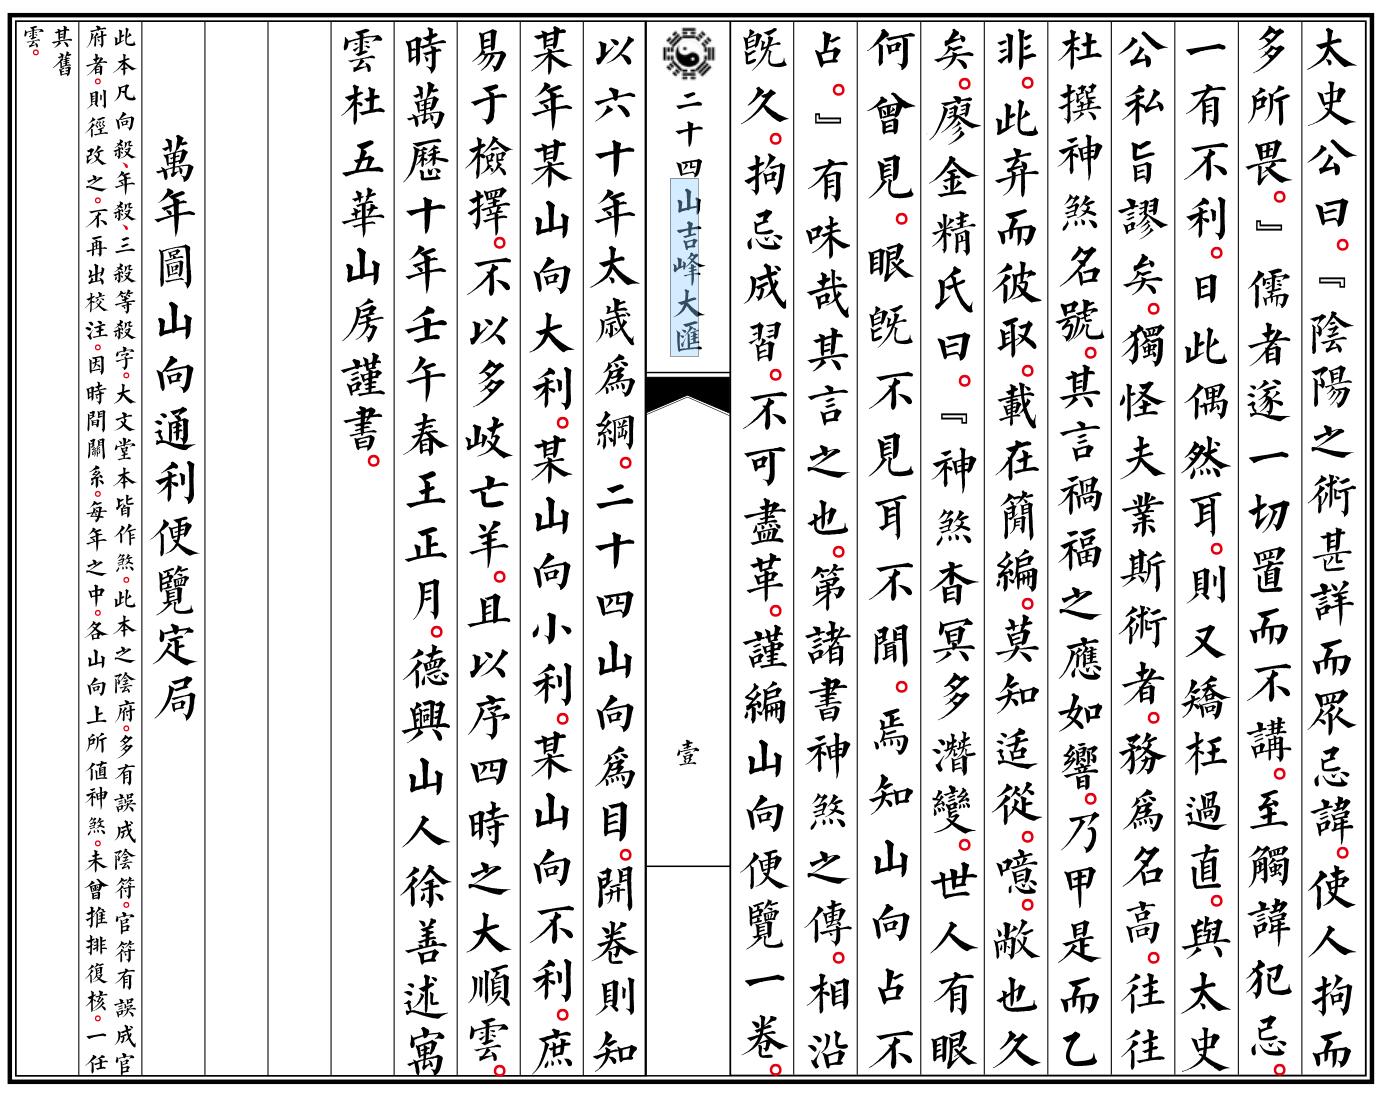 太史公曰。『陰陽之術甚詳而眾忌諱。使人拘而
多所畏。』儒者遂一切置而不講。至觸諱犯忌。
一有不利。曰此偶然耳。則又矯枉過直。與太史
公私旨謬矣。獨怪夫業斯術者。務為名高。往往
杜撰神煞名號。其言禍福之應如響。乃甲是而乙
非。此弃而彼取。載在簡編。莫知适從。噫。敝也久
矣。廖金精氏曰。『神煞杳冥多潛變。世人有眼
何曾見。眼旣不見耳不聞。焉知山向占不
占。』有味哉其言之也。第諸書神煞之傳。相沿
旣久。拘忌成習。不可盡革。謹編山向便覽一卷。
二十四山吉峰大匯
壹
以六十年太歲為綱。二十四山向為目。開卷則知
某年某山向大利。某山向小利。某山向不利。庶
易于檢擇。不以多岐亡羊。且以序四時之大順雲。
時萬歷十年壬午春王正月。德興山人徐善述寓
雲杜五華山房謹書。
萬年圖山向通利便覽定局
此本凡向殺、年殺、三殺等殺字。大文堂本皆作煞。此本之陰府。多有誤成陰符。官符有誤成官
府者。則徑改之。不再出校注。因時間關系。每年之中。各山向上所值神煞。未曾推排復核。一任
其舊
雲。